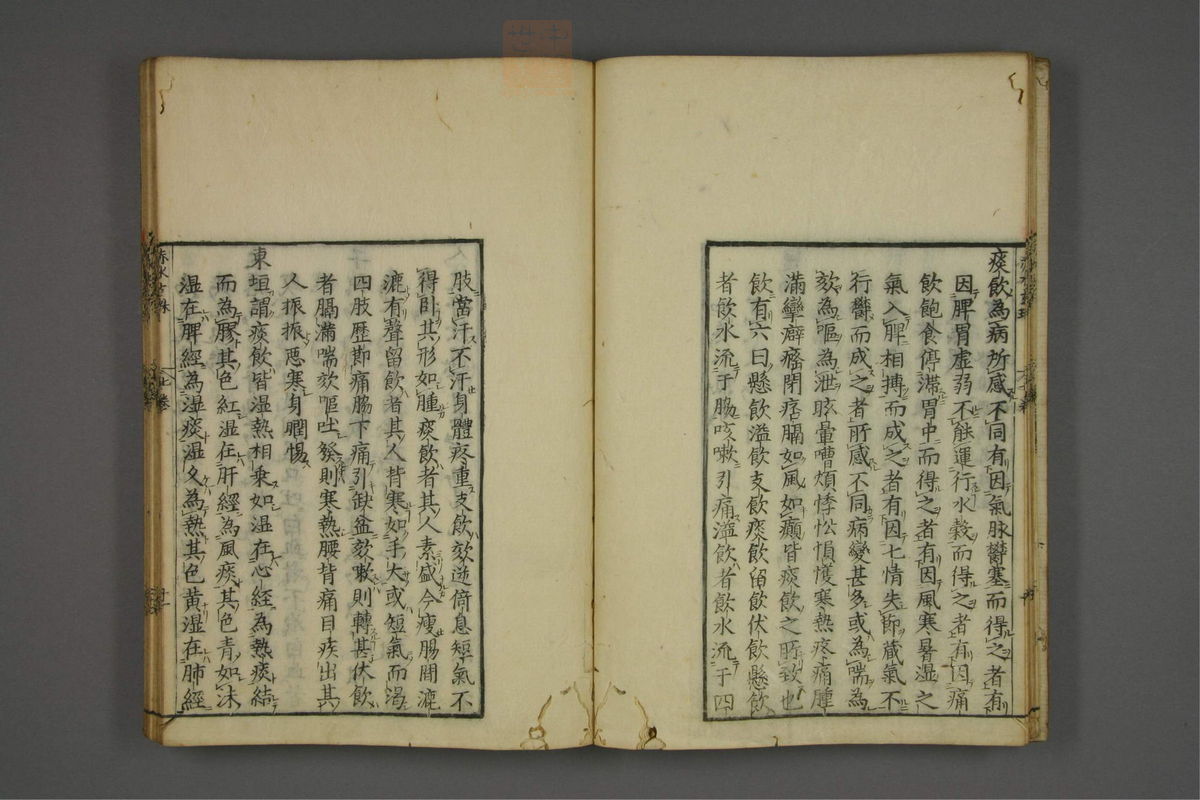 痰飲為病所感不同有因氣脉欝塞而得之者有
因脾胃虚弱不能運行水穀而得之者有因痛
飲飽食停滯胃中而得之者有因風寒暑湿之
氣入脾相搏而成之者有因七情失節蔵氣不
行欝而成之者所感不同病變甚多或為喘為
欬為嘔為泄眩暈嘈煩悸忪慣㦬寒熱疼痛腫
滿攣癖癃閉痞膈如風如癲皆痰飲之所致也
飲有六曰懸飲溢飲支飲痰飲留飲伏飲懸飲
者飲水流于脇咳嗽引痛溢飲者飲水流于四
肢當汗不汗身體疼重支飲欬逆倚息短氣不
得卧其形如腫痰飲者其人素盛今瘦腸間漉
漉有聲留飲者其人背寒如手大或短氣而渇
四肢歴節痛脇下痛引缺盆欬嗽則轉甚伏飲
者膈滿喘欬嘔吐發則寒熱腰背痛目疾出其
人振振悪寒身瞤惕
東垣謂痰飲皆湿熱相乗如湿在心經為熱痰結
而為膠其色紅湿在肝經為風痰其色青如沫
湿在脾經為湿痰湿久為熱其色黄湿在肺經